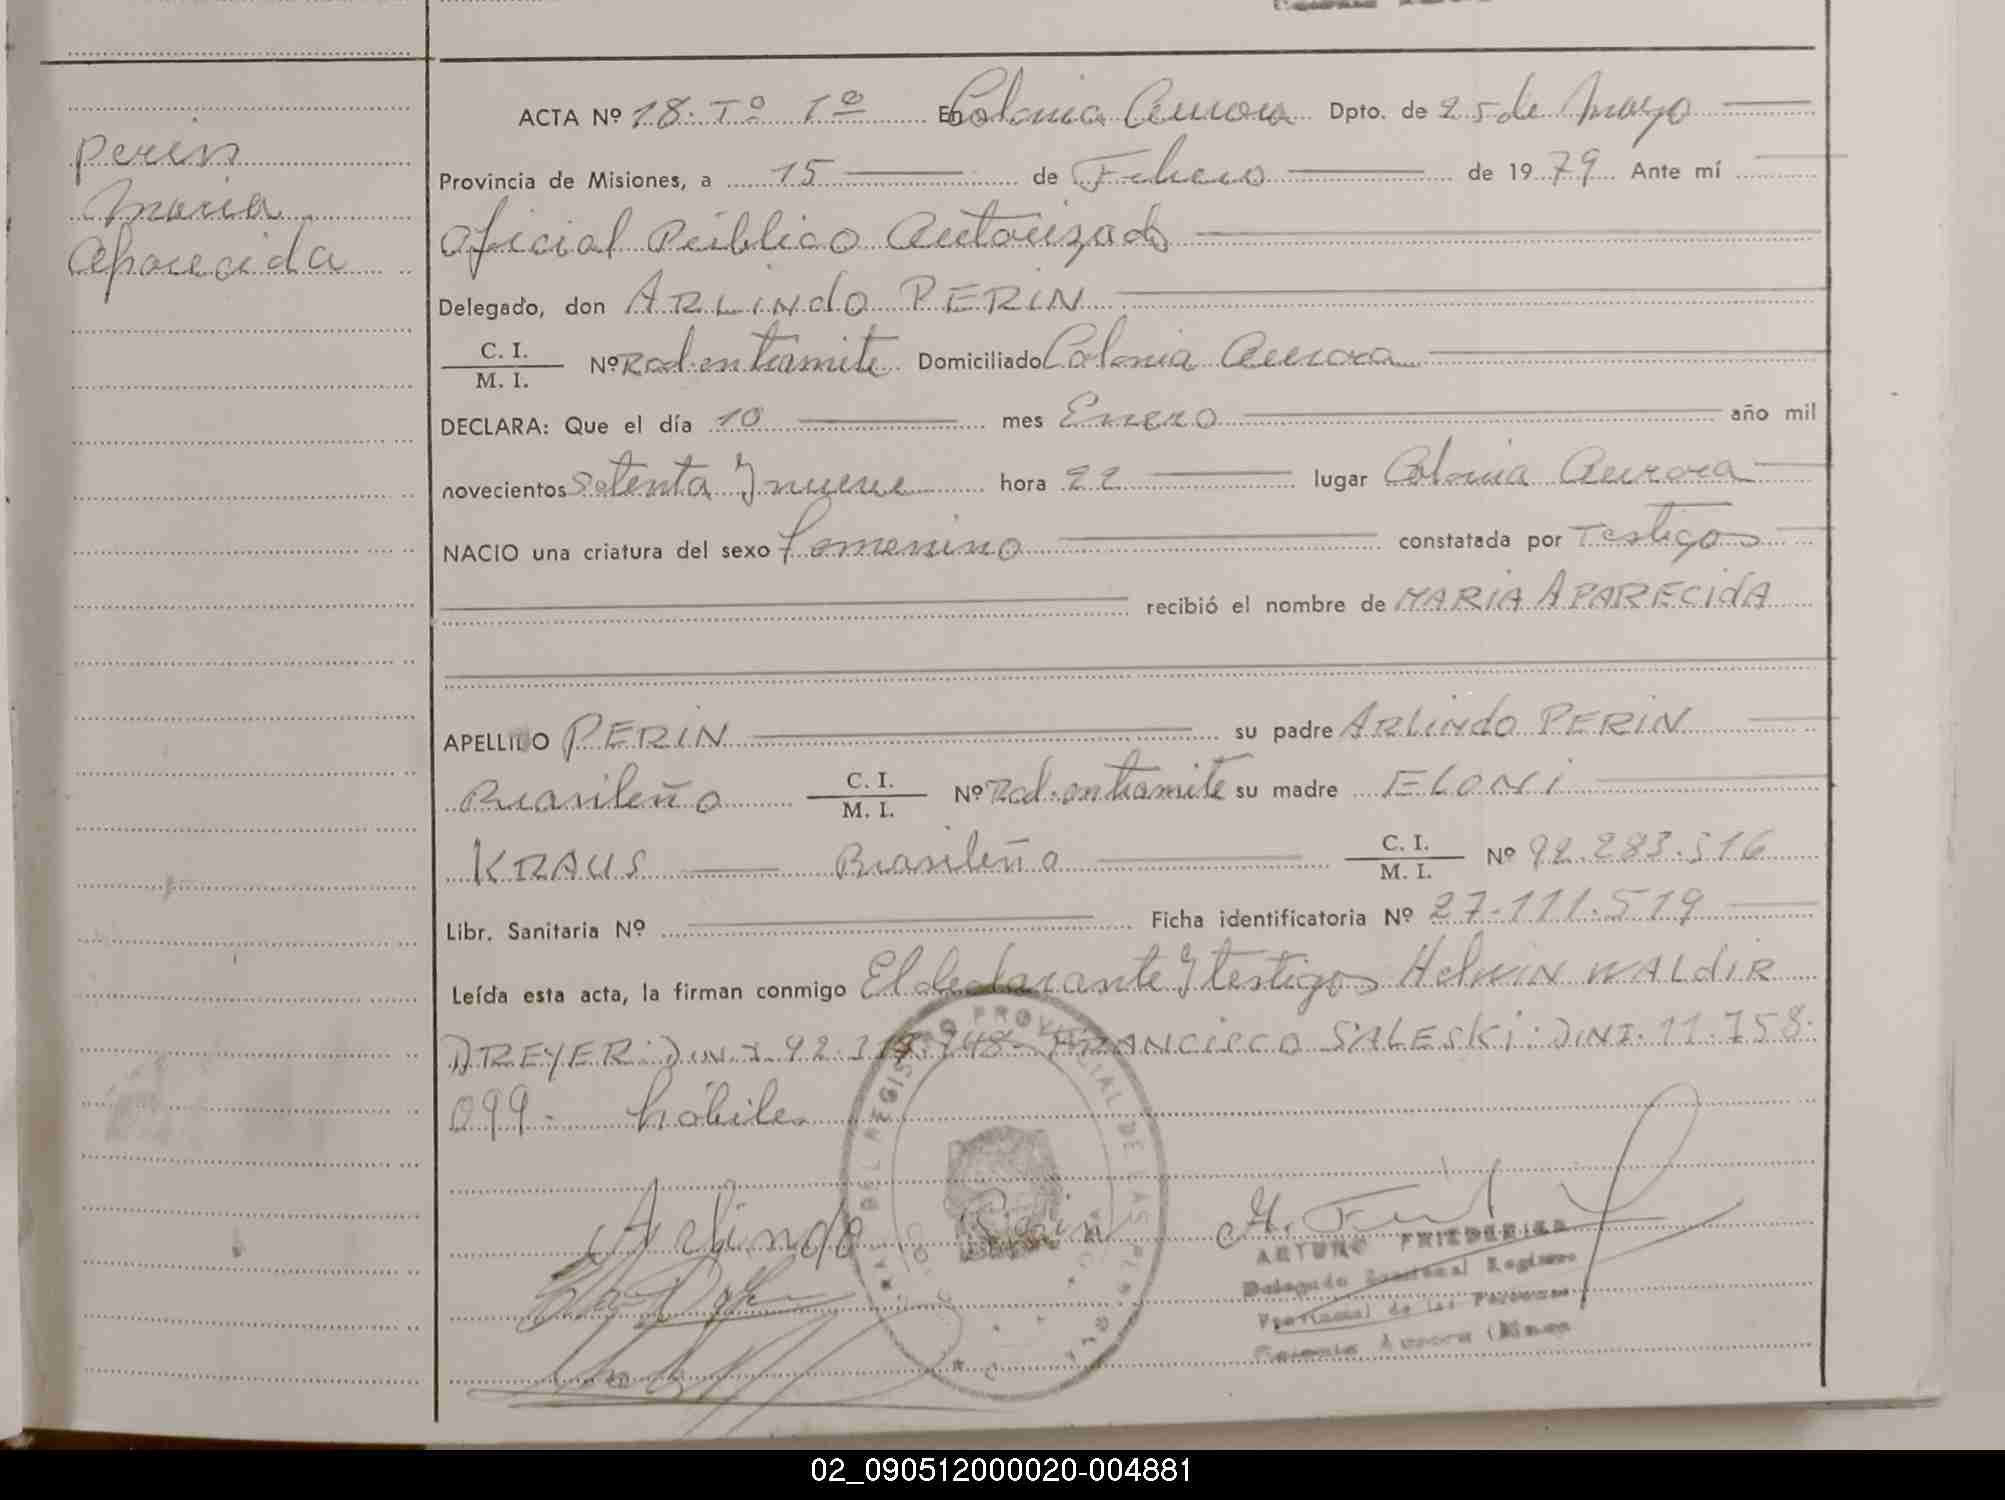 Perin
Maria
Aparecida
ACTA Nº 18. Tº 1º En Colonia Aurora Dpto. de 25 de Mayo
Provincia de Misiones, a 15 de Febrero de 1979 Ante mí
Oficial Público Autorizado
Delegado, don ARLINDO PERIN
C. I.
M. I. Nº Rad. en tramite Domiciliado Colonia Aurora
DECLARA: Que el día 10 mes Enero año mil
novecientos setenta y nueve hora 22 lugar Colonia Aurora
NACIO una criatura del sexo femenino constatada por Testigos
recibió el nombre de MARIA APARECIDA
APELLIDO PERIN su padre ARLINDO PERIN
Brasileño C. I.
M. I. Nº Rad. en tramite su madre ELONI
KRAUS Brasileña C. I.
M. I. Nº 92.283.516
Libr. Sanitaria Nº Ficha identificatoria Nº 27.111.519
Leída esta acta, la firman conmigo El declarante y testigos HELWIN WALDIR
DREYER: D.N.I. 92. FRANCISCO SALESKI: DNI. 11.758.
099.- hábiles
DEL REGISTRO PROVINCIAL DE LAS
Arlindo Perin
ARTURO FRIEDERICH
Delegado Seccional Registro
Provincial de las Personas
Colonia Aurora
02_090512000020-004881